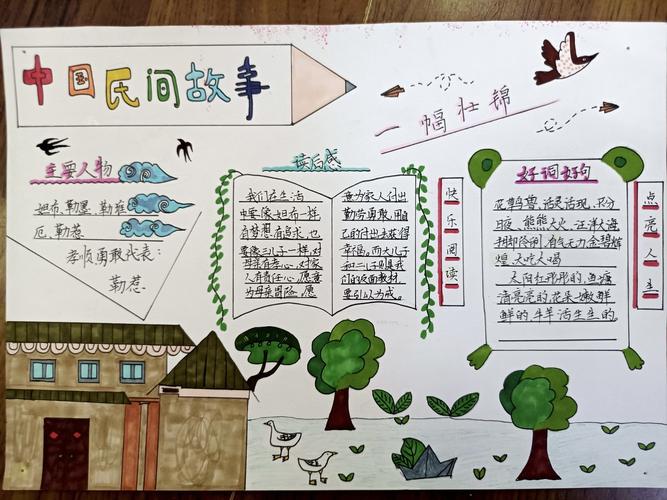 中国民间故事
一幅壮锦
主要人物
妲布、勒墨、勒堆
厄、勒惹
孝顺勇敢代表:
勒惹
读后感
我们在生活
中要像妲布一样
有梦想,有追求,也
要像三儿子一样,对
母亲有孝心,对家
人有责任心,愿意
为母亲冒险,愿
意为家人付出
勤劳勇敢,用自
己的付出去获得
幸福。而大儿子
和二儿子则是我
们的反面教材,
要引以为戒。
快乐阅读
好词好句
日夜、熊熊大火、汪洋大海
有气无力、金碧辉
煌、大吃大喝
太阳红彤彤的,鱼塘
清亮亮的,花朵嫩鲜
鲜的,牛羊活生生的。
点亮人生